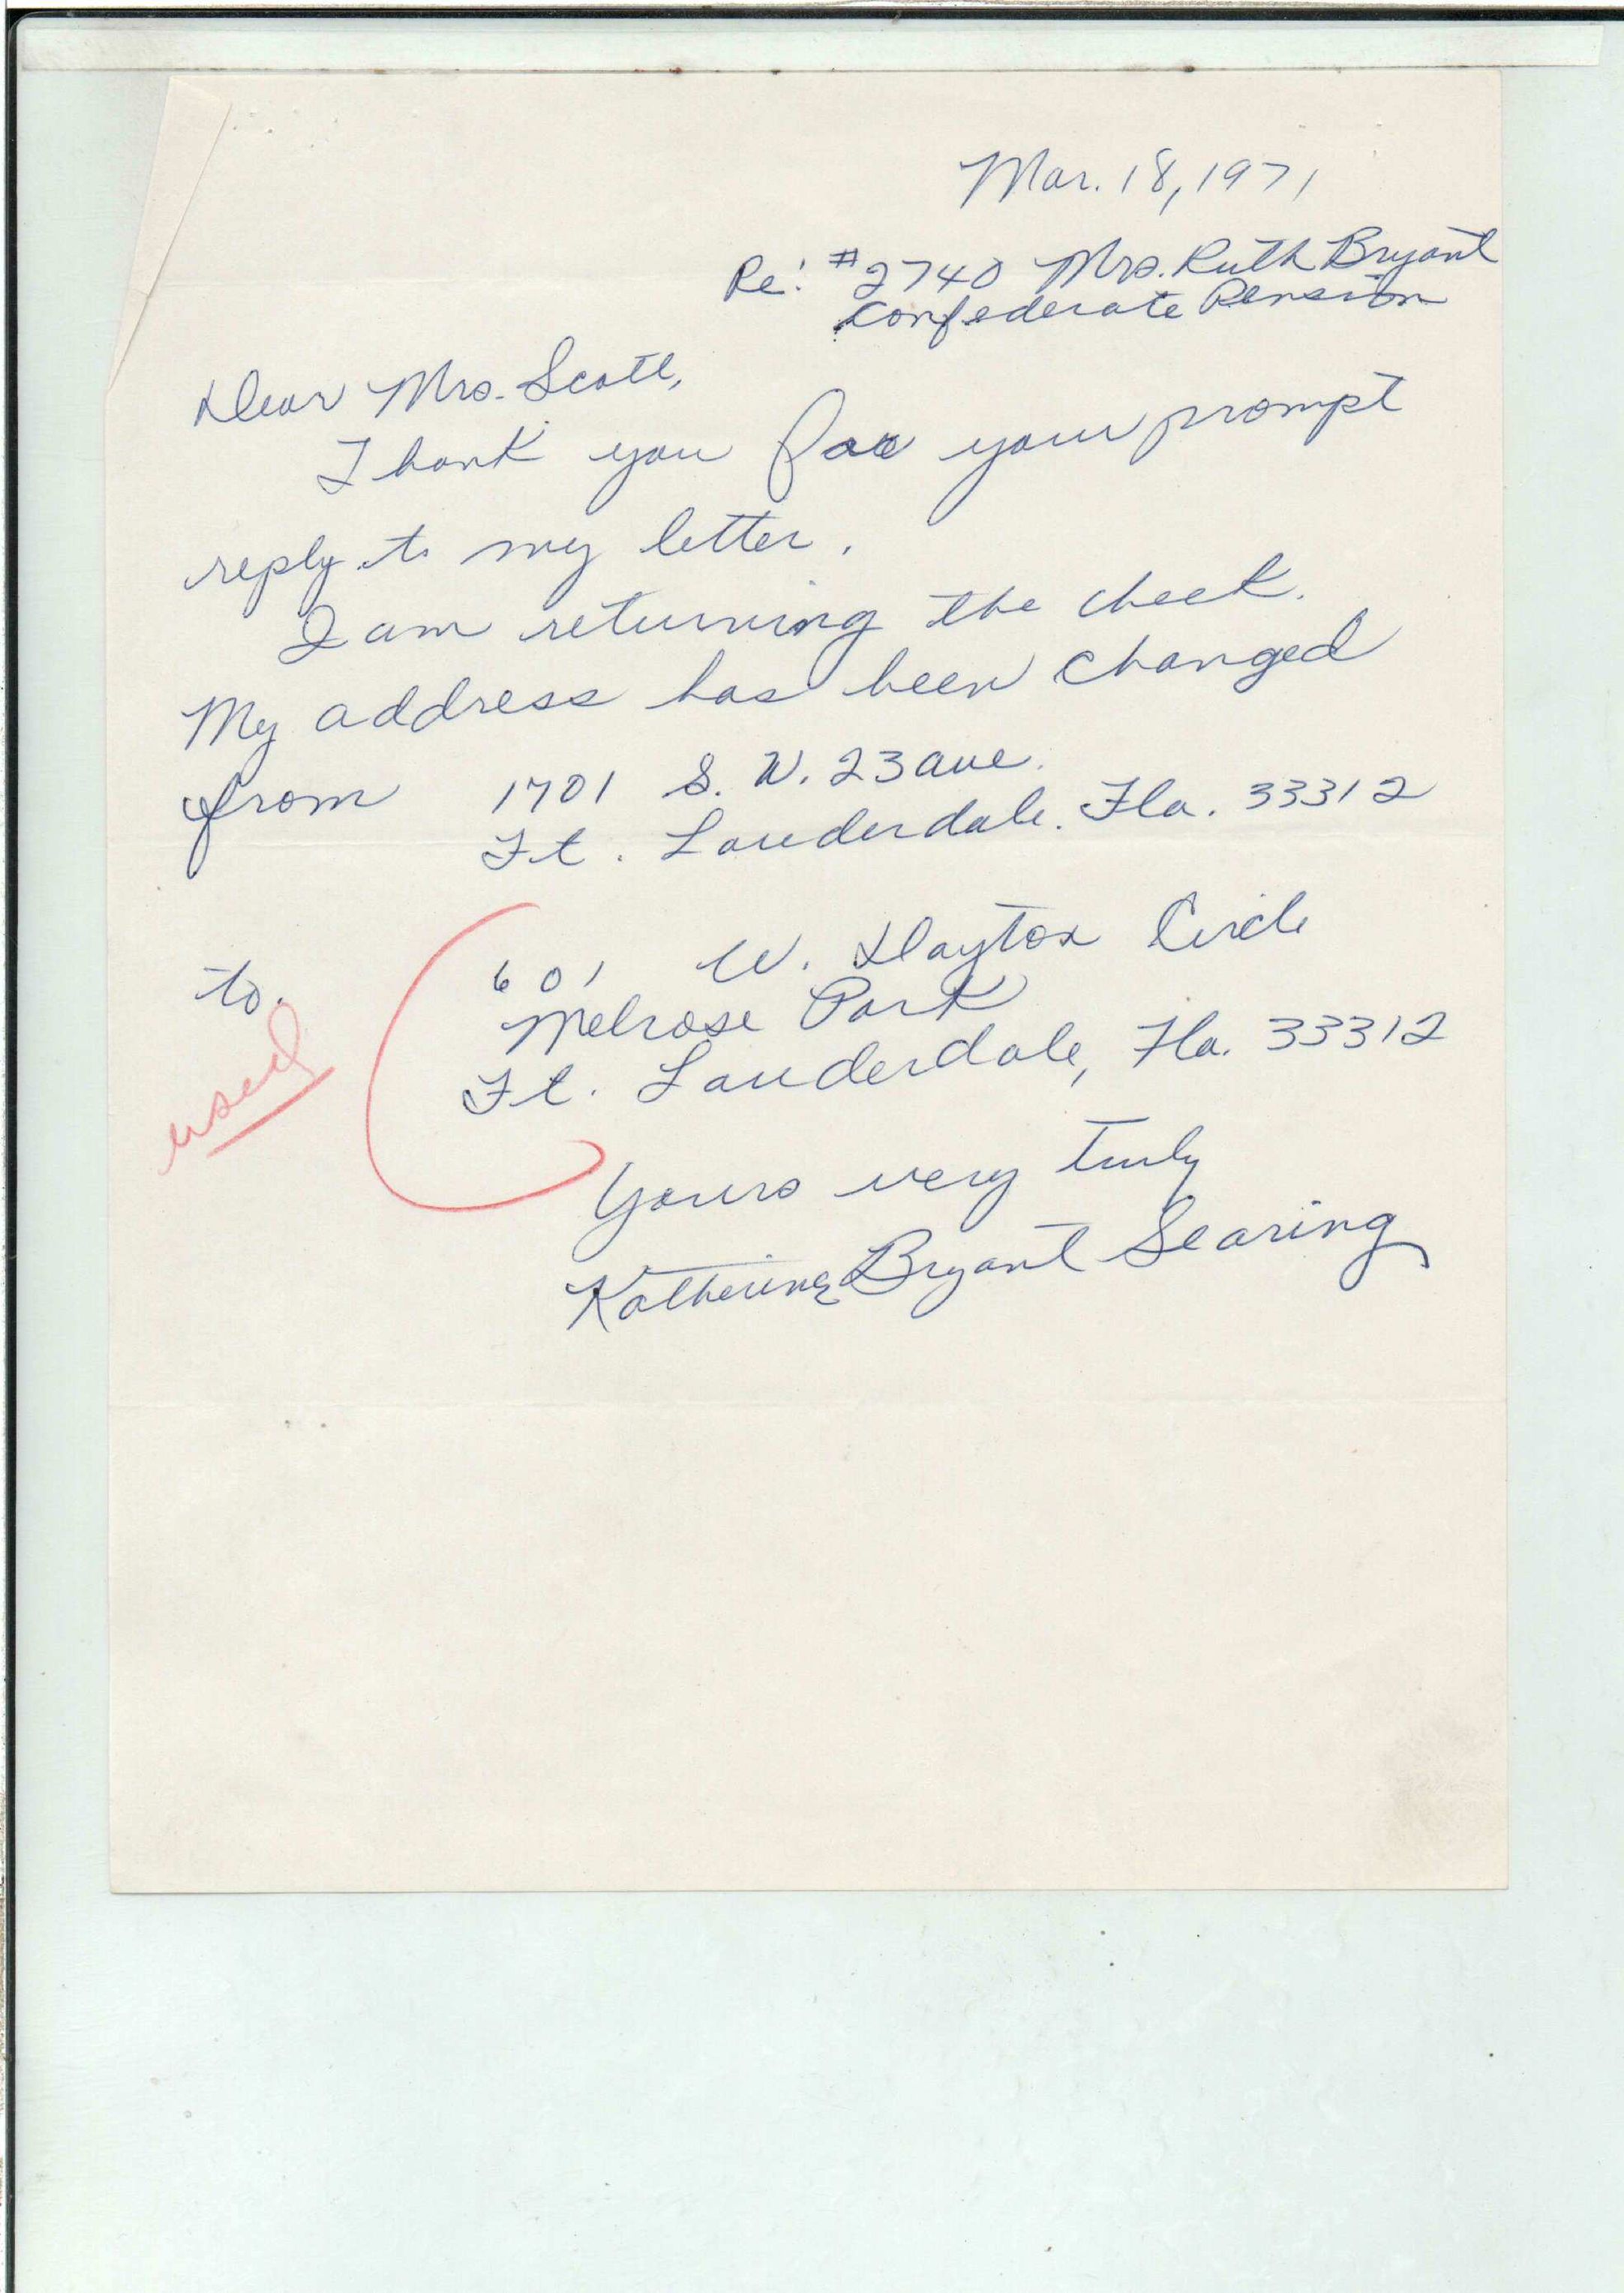 Mar. 18, 1971
Re: #2740 Mrs. Ruth Bryant
Confederate Pension
Dear Mrs. Scott,
Thank you for your prompt
reply to my letter.
I am returning the check.
My address has been changed
from 1701 S. W. 23 ave.
Ft. Lauderdale. Fla. 33312
to. 601 W. Dayton Circle
Melrose Park
Ft. Lauderdale, Fla. 33312
used
Yours very truly
Katherine Bryant Searing